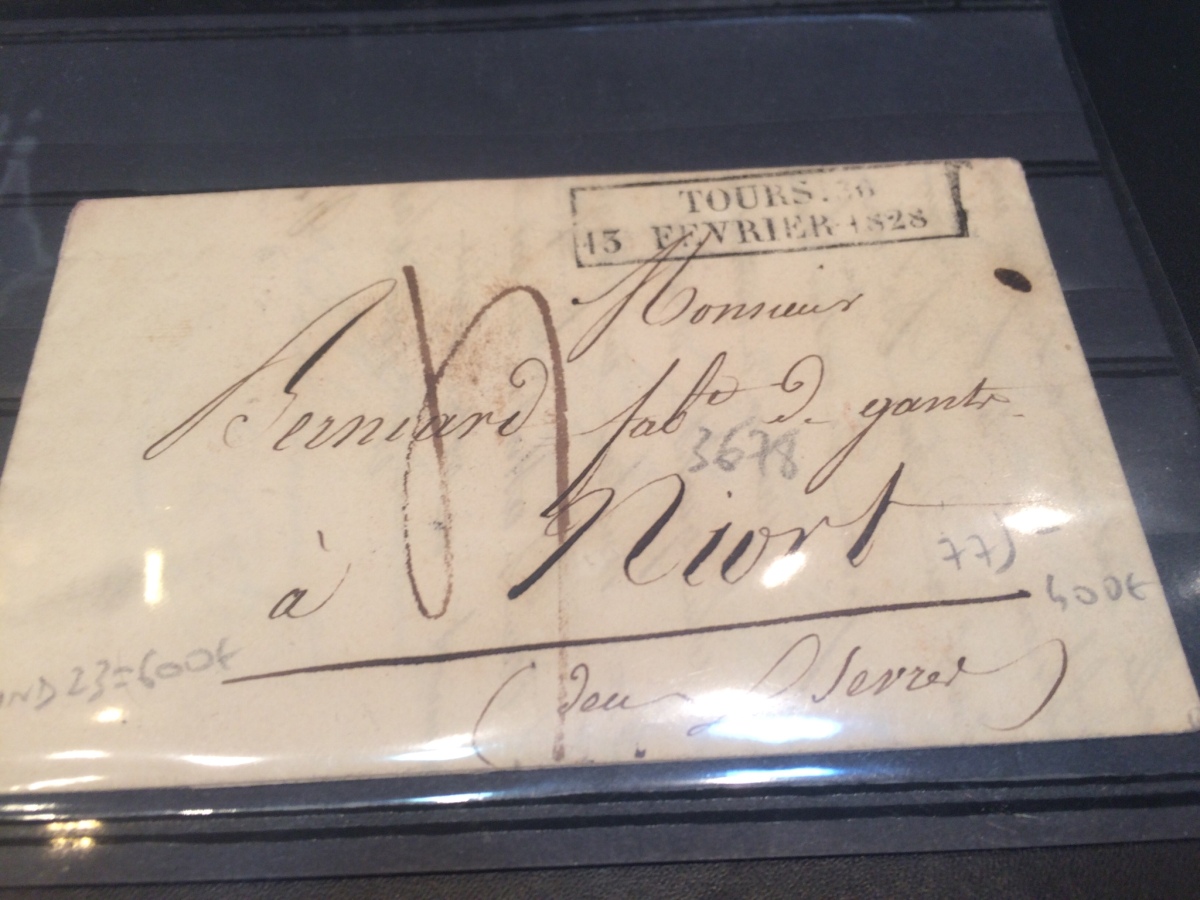 TOURS. 36
13 FEVRIER 1828
Monsieur
fab.t de gants
3678
à Niort
775-
600€
23=600€
(deux Sevres)